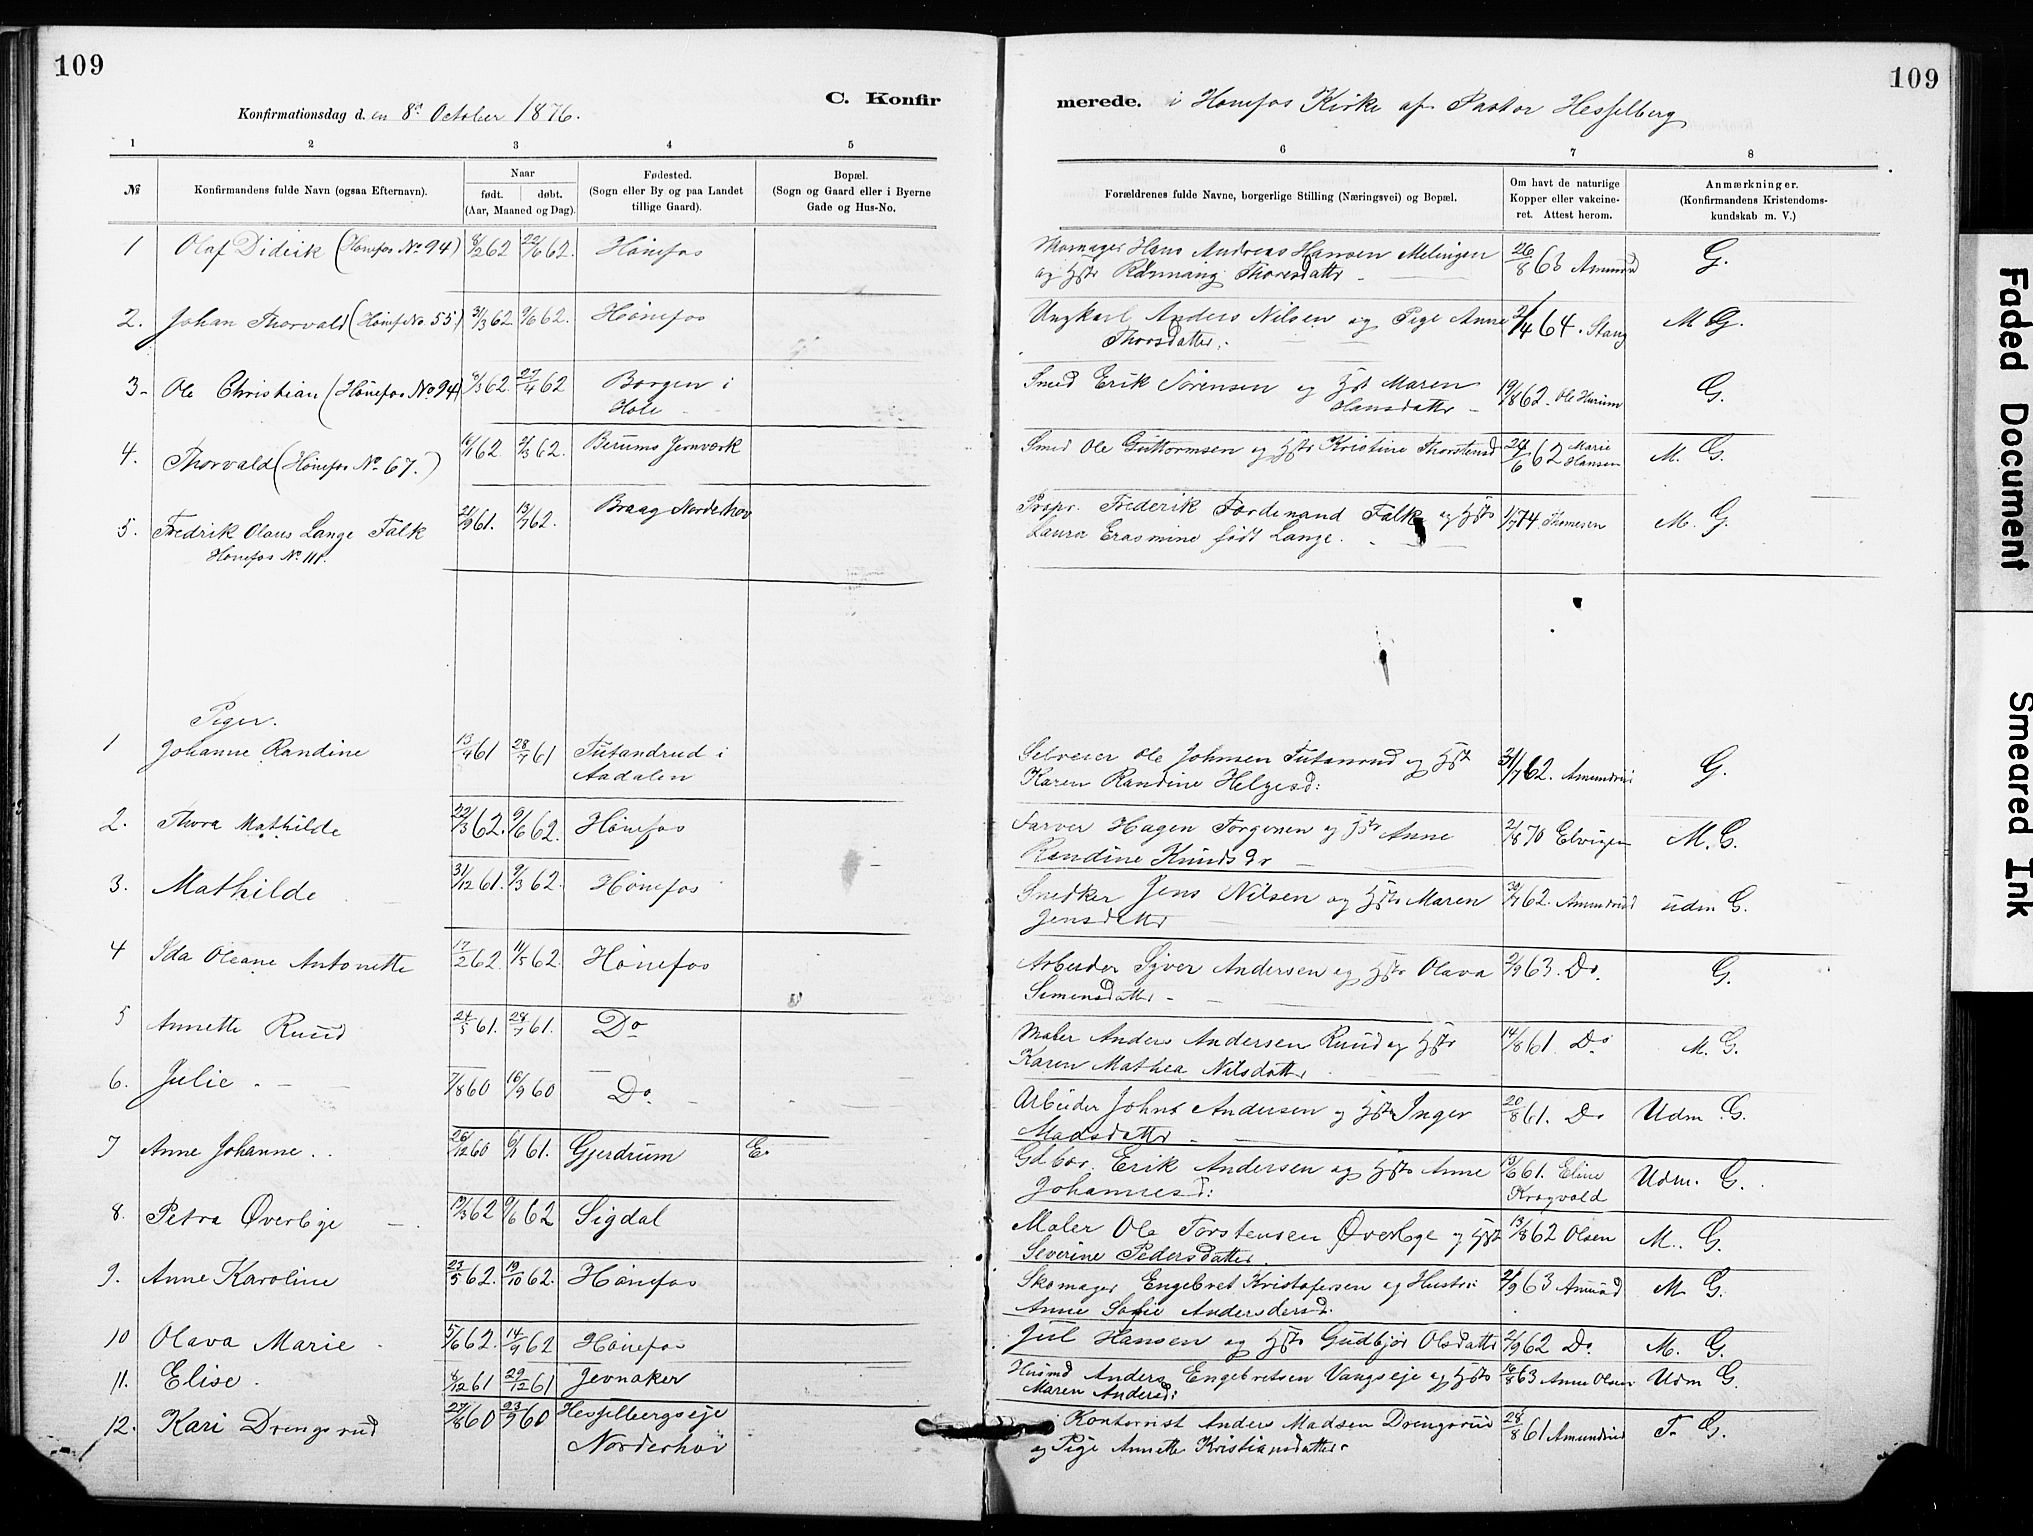 109
109
C. Konfirmerede. i Hønefos Kirke af Pastor Hesselberg
Konfirmationsdag d. en 8de October 1876.
1 2 3 4 5 6 7 8
№
Konfirmandens fulde Navn (ogsaa Efternavn).
Naar
født. døbt.
(Aar, Maaned og Dag).
Fødested.
(Sogn eller By og paa Landet
tillige Gaard).
Bopæl.
(Sogn og Gaard eller i Byerne
Gade og Hus-No.
Forældrenes fulde Navne, borgerlige Stilling (Næringsvei) og Bopæl.
Om havt de naturlige
Kopper eller vakcine-
ret. Attest herom.
Anmærkninger.
(Konfirmandens Kristendoms-
kundskab m. V.)
1 Olaf Didrik (Hønefos No 94) 8/2 62 22/6 62. Hønefos Hans Andreas Hansen Melingen 26/8 63 Amunrud G.
og Hst Rønnaug Thoresdatter
2. Johan Thorvald (Hønef No. 55) 31/3 62 9/6 62. Hønefos Ungkarl Anders Nilsen og Pige Anne 2/4 64. Stang M G.
Thorsdatter.
3- Ole Christian (Hønefos No 94) 3/3 62 27/4 62 Borgen i Smed Erik Sørensen og Hst Maren 19/8 62. Ole Hurum G.
Hole Hansdatter
4. Thorvald (Hønefos No 67.) 16/1 62. 2/3 62. Berums Jernværk Smed Ole Guttormsen og Hst Kristine Thorstensd 24/6 62 Marie Hansen M. G.
5. Fredrik Olaus Lange Falk 21/9 61. 13/7 62. Braag Norderhov Propr. Frederik Ferdinand Falk og Hst 1/7 74 Thomesen M. G.
Hønefos No 111. Laura Erasmine født Lange.
Piger.
1 Johanne Randine 13/4 61 28/7 61 Tutandrud i Selveier Ole Johnsen Tutanrud og Hst 31/7 62. Amundrud G.
Aadalen Karen Randine Helgesd:
2. Thora Mathilde 22/3 62. 9/6 62. Hønefos Farver Hagen Torgersen og Hst Anne 2/8 70 Elvigen M. G.
Randine Knudsdr
3. Mathilde 31/12 61. 9/3 62. Hønefos Snedker Jens Nilsen og Hst Maren 30/7 62. Amundrud udm G.
Jensdatter
4 Ida Oleane Antonette 17/2 62. 11/5 62. Hønefos Arbeider Syver Andersen og Hst Olava 2/9 63. Do. G.
Simensdatter
5 Annette Ruud 24/5 61. 28/7 61. Do Maler Anders Andersen Ruud og Hst 14/8 61. Do M. G.
Karen Mathea Nilsdatter
6. Julie 7/8 60 16/9 60 Do. Arbeider Johns Andersen og Hst Inger 20/8 61. Do Udm G.
Madsdatter
7 Anne Johanne 26/12 60 6/1 61. Gjerdrum E. Gdbr. Erik Andersen og Hst Anne 13/6 61. Eline Udm. G.
Johannesd: Kragvold
8. Petra Øverbye 19/3 62 9/6 62 Sigdal Maler Ole Torstensen Øverbye og Hst 13/8 62 Olsen M. G.
Severine Pedersdatter
9. Anne Karoline 23/5 62. 19/10 62. Hønefos Skomager Engebret Kristofersen og Hustru 2/9 63 Amund M. G.
Anne Sofie Andersdersd.
10 Olava Marie 5/6 62. 14/9 62 Hønefos Jul Hansen og Hst Gudbjør Olsdatter 2/9 62 Do. M. G.
11. Elise. 8/12 61 29/12 61 Jevnaker Husmd Anders Engebretsen Vangseje og Hst 16/8 63 Anne Olsen Udm G.
Maren Andersd:
12. Kari Drengsrud 27/8 60 23/9 60 Hesselbergseje Kontorist Anders Madsen Drengsrud 28/8 61 Amundrud T. G.
Norderhov og Pige Annette Kristiansdatter
Faded Document
Smeared Ink